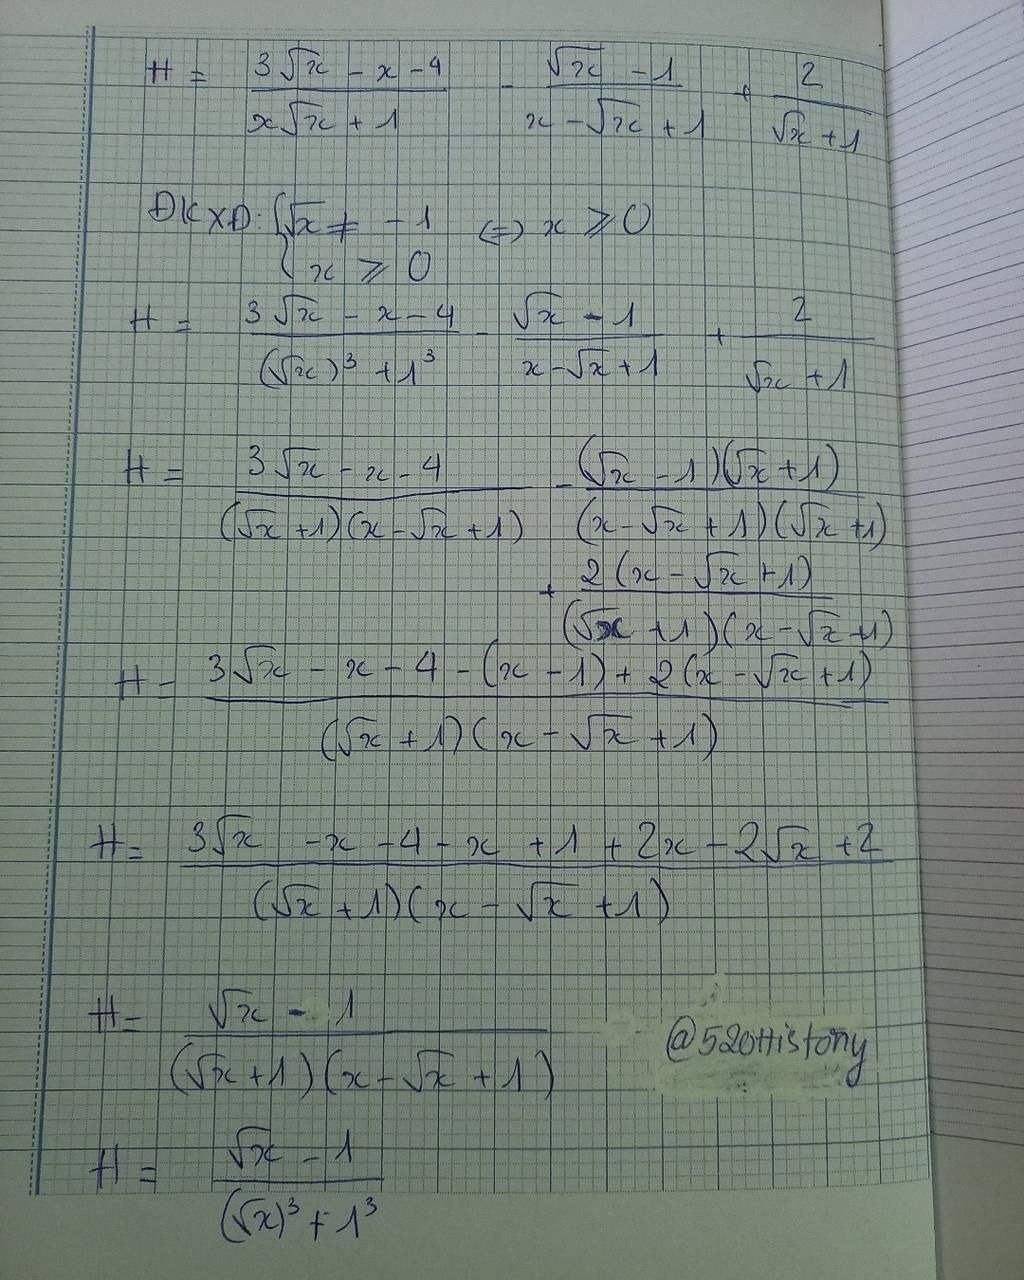 H = (3√x - x - 4)/(x√x + 1) - (√x - 1)/(x - √x + 1) + 2/(√x + 1)
ĐKXĐ: {√x ≠ -1 (=) x ≥ 0
x ≥ 0
H = (3√x - x - 4)/((√x)³ + 1³) - (√x - 1)/(x - √x + 1) + 2/(√x + 1)
H = (3√x - x - 4)/((√x + 1)(x - √x + 1)) - ((√x - 1)(√x + 1))/((x - √x + 1)(√x + 1))
+ (2(x - √x + 1))/((√x + 1)(x - √x + 1))
H = (3√x - x - 4 - (x - 1) + 2(x - √x + 1))/((√x + 1)(x - √x + 1))
H = (3√x - x - 4 - x + 1 + 2x - 2√x + 2)/((√x + 1)(x - √x + 1))
H = (√x - 1)/((√x + 1)(x - √x + 1))
@520History
H = (√x - 1)/((√x)³ + 1³)